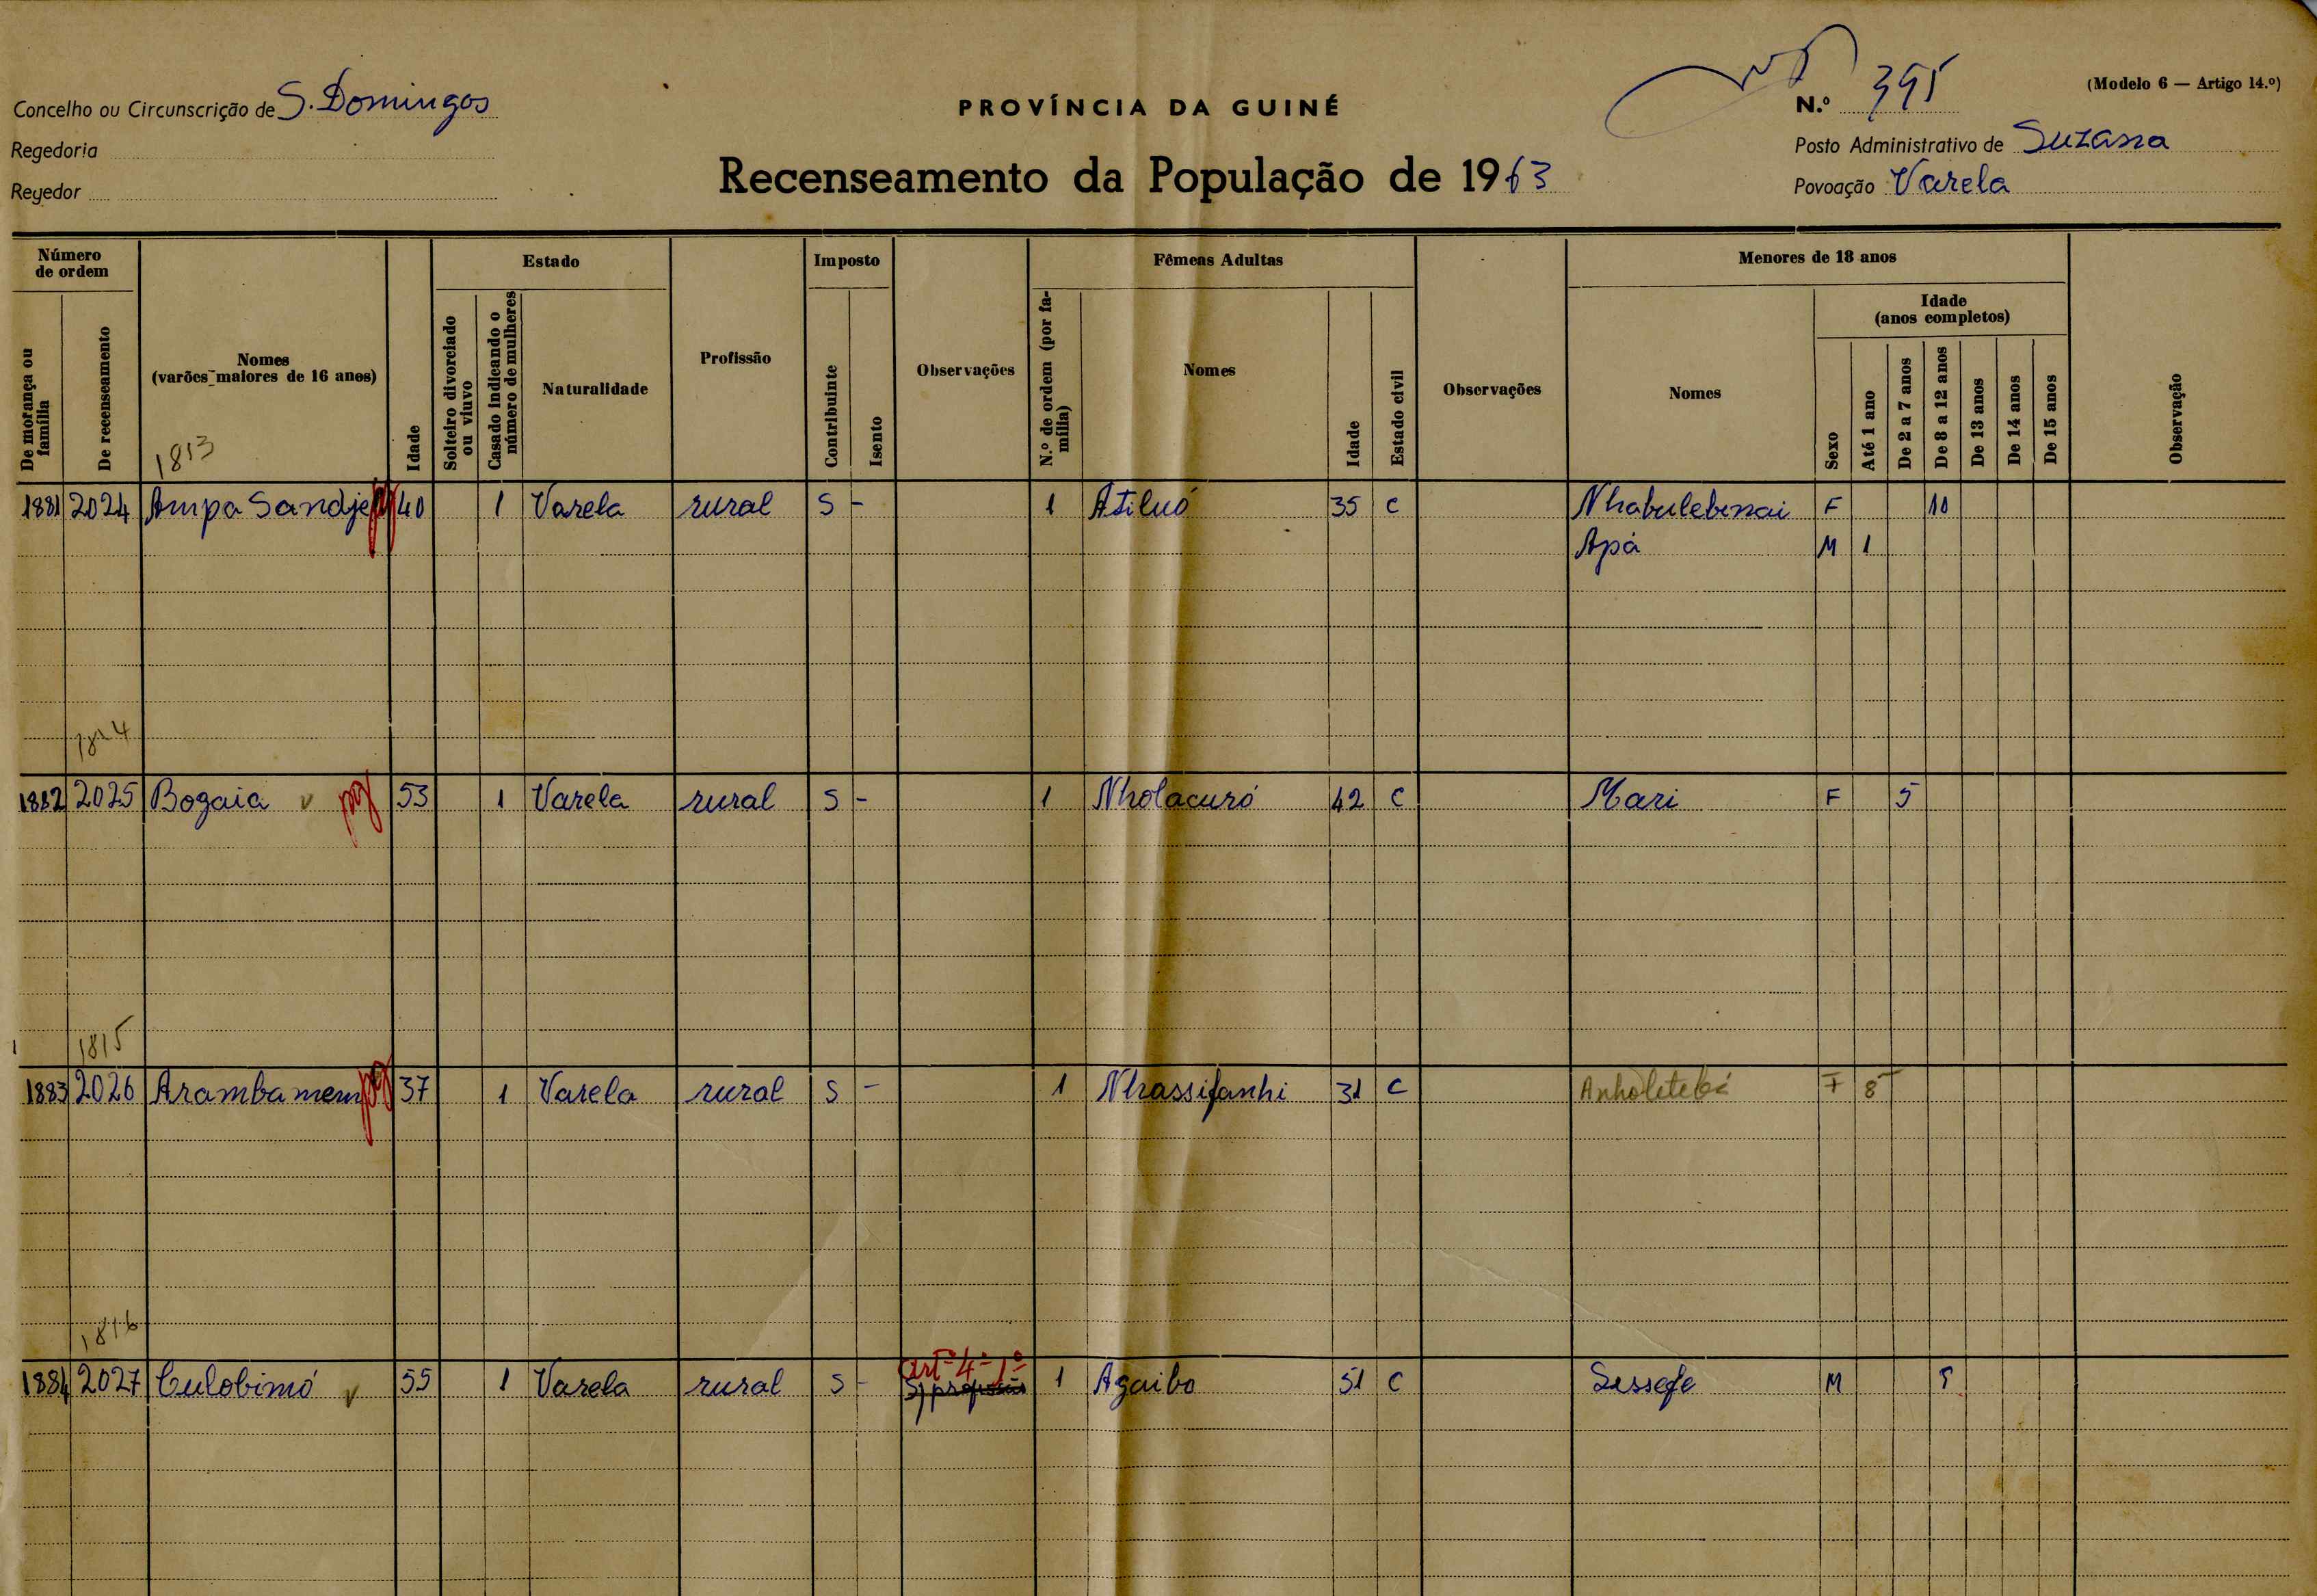 Concelho ou Circunscrição de S. Domingos
Regedoria
Regedor
PROVÍNCIA DA GUINÉ
Recenseamento da População de 1963
(Modelo 6 — Artigo 14.º)
N.º 395
Posto Administrativo de Suzana
Povoação Varela
Número de ordem
De morança ou família
De recenseamento
Nomes
(varões maiores de 16 anos)
Idade
Estado
Solteiro divorciado ou viuvo
Casado indicando o número de mulheres
Naturalidade
Profissão
Imposto
Contribuinte
Isento
Observações
Fêmeas Adultas
N.º de ordem (por família)
Nomes
Idade
Estado civil
Observações
Menores de 18 anos
Nomes
Sexo
Idade
(anos completos)
Até 1 ano
De 2 a 7 anos
De 8 a 12 anos
De 13 anos
De 14 anos
De 15 anos
Observação
1813
1881 2024 Ampa Sandje pg 40 1 Varela rural S - 1 Atiluó 35 C Nhabulebenai F 10
Apá M 1
1814
1882 2025 Bogaia v pg 53 1 Varela rural S - 1 Nholacuró 42 C Mari F 5
1815
1883 2026 Arambamem pg 37 1 Varela rural S - 1 Nhassifanhi 31 C Anholetebá F 8
1816
art.º 4.º 1.º
1884 2027 Culobimó v 55 1 Varela rural S - 1 Agaibo 51 C Sessefe M